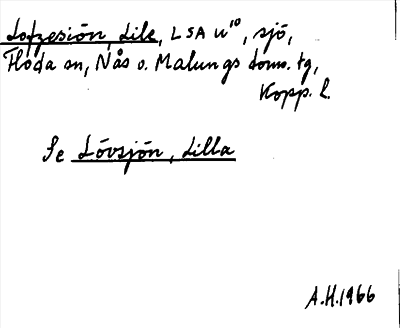 Lofzesiön, Lile, LSA u¹⁰, sjö,
Floda sn, Nås o. Malungs doms. tg,
Kopp. l.
Se Lövsjön, Lilla
A.H. 1966